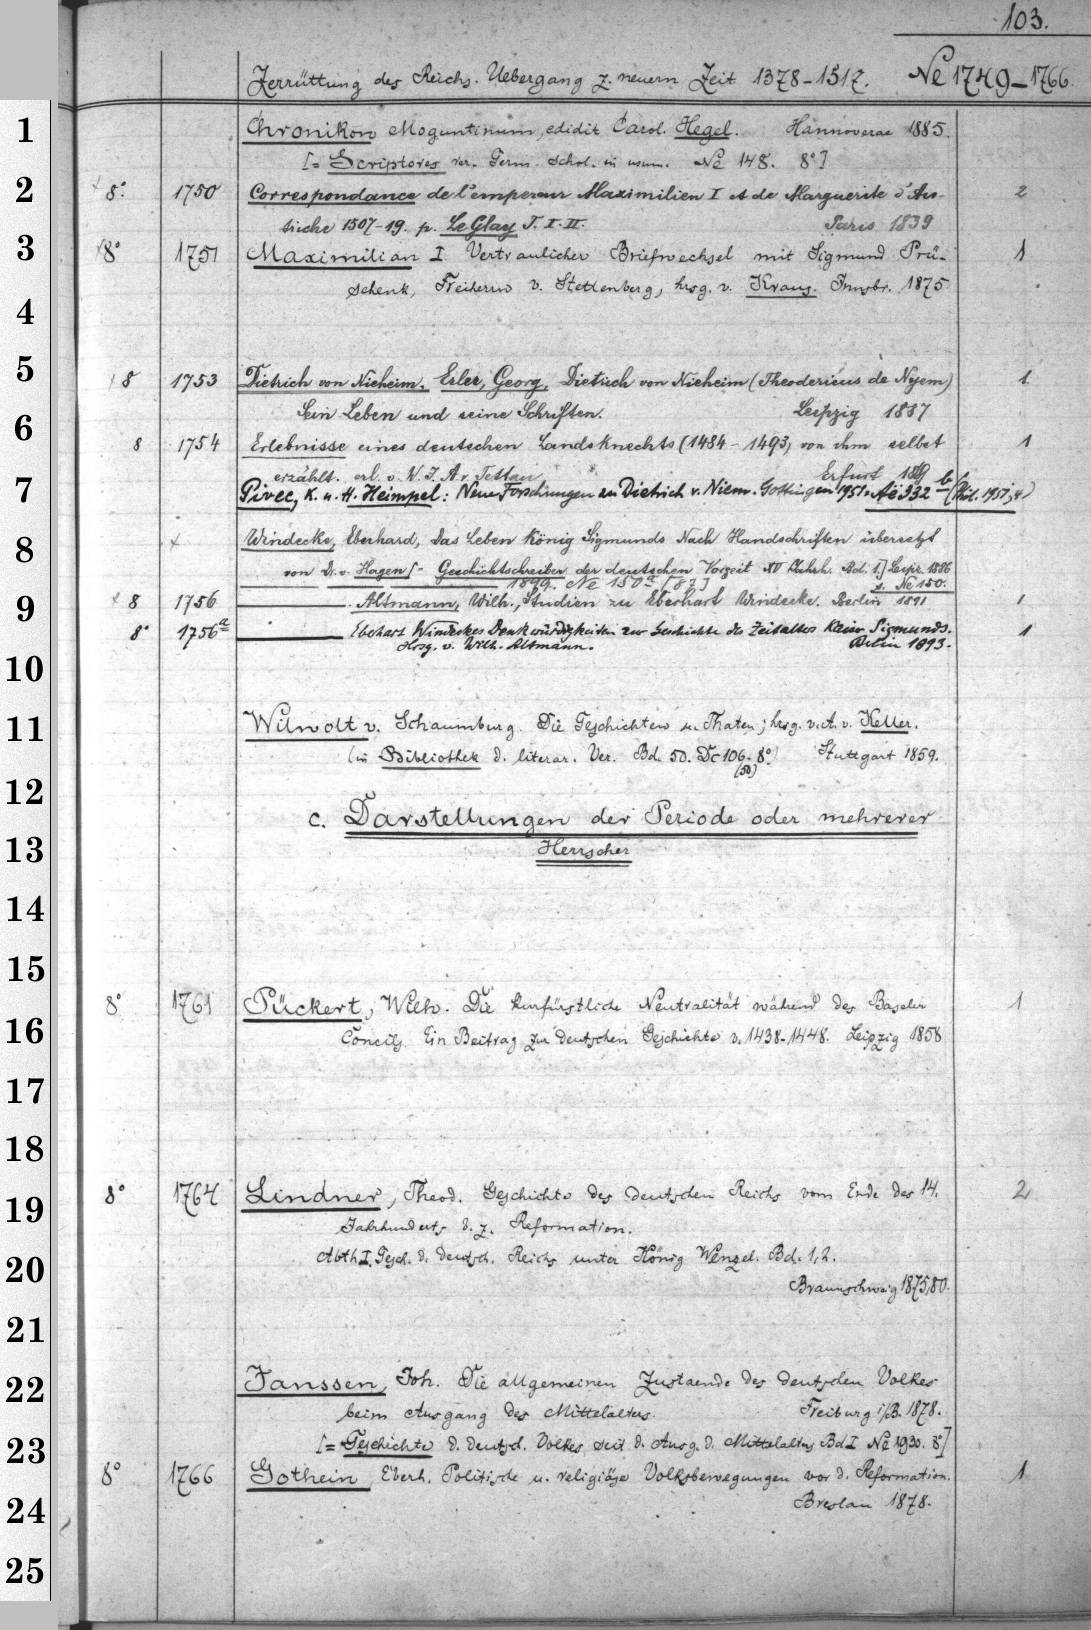 103.
Zerrüttung des Reichs. Uebergang z. neuern Zeit 1378-1517. Ne 1749-1766.
1
Chronikon Moguntinum, edidit Carol. Hegel. Hannoverae 1885.
[= Scriptores rer. Germ. schol. in usum. Ne 148. 8°]
2 8° 1750 Correspondance de l'empereur Maximilien I et de Marguerite d'Au- 2
triche 1507-19. p. Le Glay T. I. II. Paris 1839
3 8° 1751 Maximilian I. Vertraulicher Briefwechsel mit Sigmund Prü- 1
schenk, Freiherrn v. Stettenberg, hrsg. v. Kraus. Innsbr. 1875
4
5 8 1753 Dietrich von Nieheim. Erler, Georg, Dietrich von Nieheim (Theodericus de Nyem) 1
Sein Leben und seine Schriften. Leipzig 1887
6 8 1754 Erlebnisse eines deutschen Landsknechts (1484-1493) von ihm selbst 1
erzählt. v. W. J. A. v. Tettau Erfurt
7 Pivec, K. u. H. Heimpel: Neue Forschungen zu Dietrich v. Niem. Göttingen 1951. Ae 332 b (Phil. 1951, 4)
8 × Windecke, Eberhard, das Leben König Sigmunds Nach Handschriften übersetzt
von Dr. v. Hagen [= Geschichtschreiber der deutschen Vorzeit XV Jahrh. Bd. 1.] Leipz. 1886
1899. Ne 150a [87] s. Ne 150.
9 × 8 1756 Altmann, Wilh., Studien zu Eberhart Windecke. Berlin 1891 1
8° 1756a Eberhart Windeckes Denkwürdigkeiten zur Geschichte des Zeitalters Kaiser Sigmunds. 1
Hrsg. v. Wilh. Altmann. Berlin 1893.
10
11 Wilwolt v. Schaumburg. Die Geschichten u. Thaten; hrsg. v. A. v. Keller.
(in Bibliothek d. literar. Ver. Bd. 50. Dc 106. 8°) Stuttgart 1859.
(50)
12
c. Darstellungen der Periode oder mehrerer
13 Herrscher
14
15
8° 1761 Pückert, Wilh. Die kurfürstliche Neutralität während des Baseler 1
16 Concils. Ein Beitrag zur deutschen Geschichte v. 1438-1448. Leipzig 1858
17
18
19 8° 1764 Lindner, Theod. Geschichte des deutschen Reichs vom Ende des 14. 2
Jahrhunderts b. z. Reformation.
20 Abth I. Gesch. d. deutsch. Reichs unter König Wenzel. Bd. 1,2.
Braunschweig 1875,80.
21
22 Janssen, Joh. Die allgemeinen Zustaende des deutschen Volkes
beim Ausgang des Mittelalters. Freiburg i/B. 1878.
23 [= Geschichte d. deutsch. Volkes seit d. Ausg. d. Mittelalters Bd I Ne 1930. 8°]
8° 1766 Gothein, Eberh. Politische u. religiöse Volksbewegungen vor d. Reformation. 1
24 Breslau 1878.
25